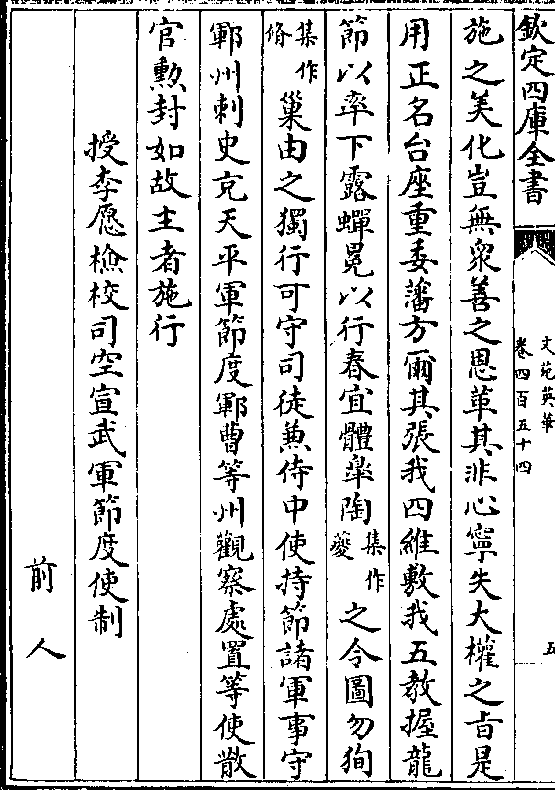 欽定四庫全書
文苑英華
卷四百五十四
五
施之美化豈無衆善之恩革其非心寧失大權之旨是
用正名台座重委藩方爾其張我四維敷我五教握龍
節以率下露蟬冕以行春宜體皐陶集作夔之令圖勿狥
集作脩巢由之獨行可守司徒兼侍中使持節諸軍事守
鄆州刺史充天平軍節度鄆曹等州觀察處置等使散
官勲封如故主者施行
授李愿檢校司空宣武軍節度使制
前人